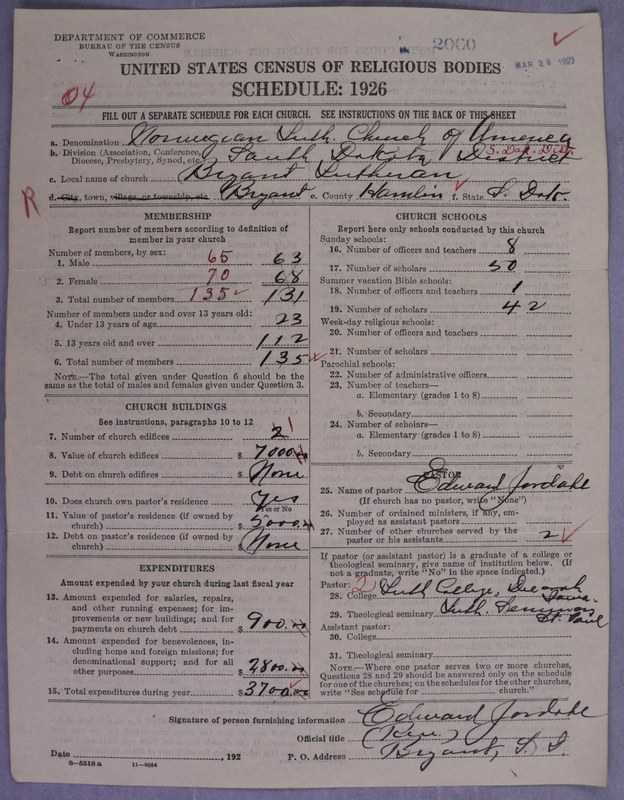 DEPARTMENT OF COMMERCE
BUREAU OF THE CENSUS
WASHINGTON
2060
MAR 26 1927
UNITED STATES CENSUS OF RELIGIOUS BODIES
SCHEDULE: 1926
04
FILL OUT A SEPARATE SCHEDULE FOR EACH CHURCH. SEE INSTRUCTIONS ON THE BACK OF THIS SHEET
a. Denomination Norwegian Luth. Church of America
b. Division (Association, Conference, Diocese, Presbytery, Synod, etc. South Dakota District S. Dak. Dist.
c. Local name of church Bryant Lutheran
R
d. City, town, village, or township, etc Bryant e. County Hamlin f. State S. Dak.
MEMBERSHIP
Report number of members according to definition of member in your church
Number of members, by sex:
1. Male 65 63
2. Female 70 68
3. Total number of members 135 131
Number of members under and over 13 years old:
4. Under 13 years of age 23
5. 13 years old and over 112
6. Total number of members 135
NOTE.—The total given under Question 6 should be the
same as the total of males and females given under Question 3.
CHURCH BUILDINGS
See instructions, paragraphs 10 to 12
7. Number of church edifices 2 1
8. Value of church edifices $ 7000
9. Debt on church edifices $ None
10. Does church own pastor's residence Yes
Yes or No
11. Value of pastor's residence (if owned by
church) $ 5000
12. Debt on pastor's residence (if owned by
church) $ None
EXPENDITURES
Amount expended by your church during last fiscal year
13. Amount expended for salaries, repairs,
and other running expenses; for im-
provements or new buildings; and for
payments on church debt $ 900.00
14. Amount expended for benevolences, in-
cluding home and foreign missions; for
denominational support; and for all
other purposes $ 2800.00
15. Total expenditures during year $ 3700.00
CHURCH SCHOOLS
Report here only schools conducted by this church
Sunday schools:
16. Number of officers and teachers 8
17. Number of scholars 50
Summer vacation Bible schools:
18. Number of officers and teachers 1
19. Number of scholars 42
Week-day religious schools:
20. Number of officers and teachers
21. Number of scholars
Parochial schools:
22. Number of administrative officers
23. Number of teachers—
a. Elementary (grades 1 to 8)
b. Secondary
24. Number of scholars—
a. Elementary (grades 1 to 8)
b. Secondary
PASTOR
25. Name of pastor Edward Jordahl
(If church has no pastor, write "None")
26. Number of ordained ministers, if any, em-
ployed as assistant pastors
27. Number of other churches served by the
pastor or his assistants 2
If pastor (or assistant pastor) is a graduate of a college or
theological seminary, give name of institution below. (If
not a graduate, write "No" in the space indicated.)
Pastor: 2
28. College Luth. College, Decorah Iowa.
29. Theological seminary Luth. Seminary St. Paul
Assistant pastor:
30. College
31. Theological seminary
NOTE.—Where one pastor serves two or more churches,
Questions 28 and 29 should be answered only on the schedule
for one of the churches; on the schedules for the other churches,
write "See schedule for church."
Signature of person furnishing information Edward Jordahl
Official title (Rev.)
Date , 192 P. O. Address Bryant, S. D.
8—5518 a 11—9064